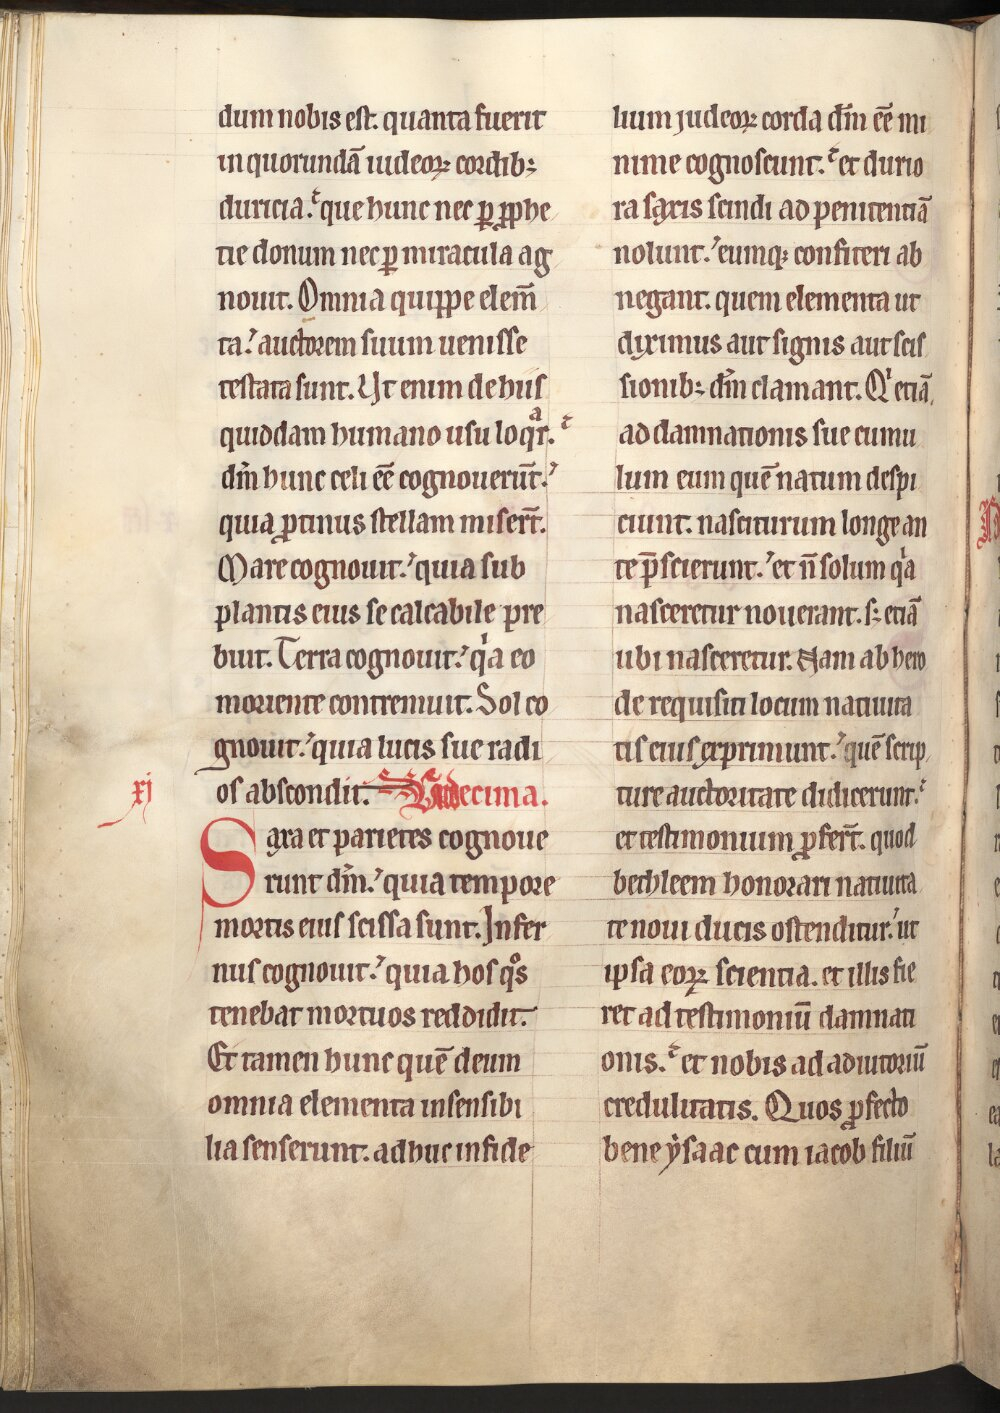 dum nobis est. quanta fuerit
in quorundā iudeoꝝ cordib;
duricia. que hunc nec ꝑ ꝓphe
tie donum nec ꝑ miracula ag
nouit. Omnia quippe elem̄
ta. auctorem suum uenisse
testata sunt. Ut enim de hiis
quiddam humano usu loqͣr.
dn̄m hunc celi ēē cognouerūt.
quia ꝓtinus stellam miserūt.
Mare cognouit. quia sub
plantis eius se calcabile pre
buit. Terra cognouit. qͥa eo
moriente contremuit. Sol co
gnouit. quia lucis sue radi
os abscondit. Undecima.
xj
Saxa et parietes cognoue
runt dn̄m. quia tempore
mortis eius scissa sunt. Infer
nus cognouit. quia hos qͦs
tenebat mortuos reddidit.
Et tamen hunc quē deum
omnia elementa insensibi
lia senserunt. adhuc infide
lium judeoꝝ corda dn̄m ēē mi
nime cognoscunt. et durio
ra saxis scindi ad penitentiā
nolunt. eumqꝫ confiteri ab
negant. quem elementa ut
diximus aut signis aut scis
sionib; dn̄m clamant. Qͥ etiā
ad damnationis sue cumu
lum eum quē natum despi
ciunt. nasciturum longe an
te p̄scierunt. et n̄ solum qͥa
nasceretur nouerant. s; etiā
ubi nasceretur. Nam ab hero
de requisiti locum natiuita
tis eius exprimunt. quē scrip
ture auctoritate didicerunt.
et testimonium ꝓferūt. quod
bethleem honorari natiuita
te noui ducis ostenditur. ut
ipsa eoꝝ scientia. et illis fie
ret ad testimoniū damnati
onis. et nobis ad adiutoriū
credulitatis. Quos ꝓfecto
bene ẏsaac cum iacob filiū